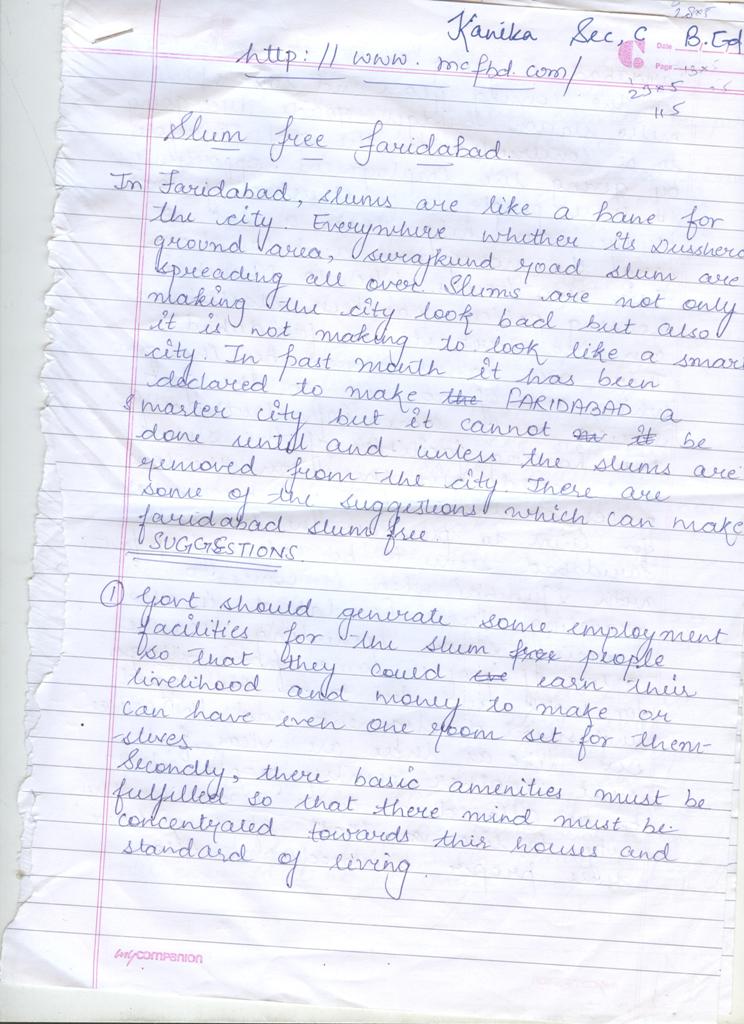 Kanika Sec, C B.Ed
Date
Page
http://www.mcfbd.com/
23×5
115
Slum free faridabad.
In Faridabad, slums are like a bane for
the city. Everywhere whether its Dusshera
ground area, surajkund road slum are
spreading all over Slums are not only
making the city look bad but also
it is not making to look like a smar
city. In past month it has been
declared to make the FARIDABAD a
smarter city but it cannot it be
done until and unless the slums are
removed from the city. There are
some of the suggestions which can make
faridabad slum free.
SUGGESTIONS
① Govt should generate some employment
facilities for the slum free people
so that they could earn their
livelihood and money to make or
can have even one room set for them-
slves
Secondly, there basic amenities must be
fulfilled so that there mind must be
concentrated towards this houses and
standard of living.
mycompanion